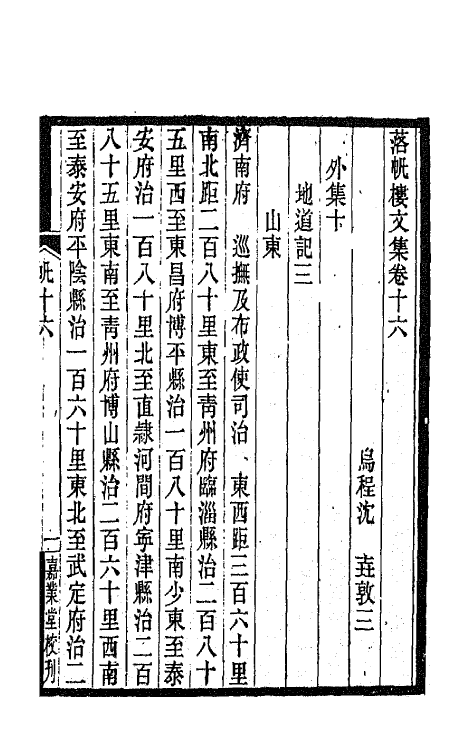 落帆樓文集卷十六
烏程沈　垚敦三
外集十
地道記三
山東
濟南府　巡撫及布政使司治、東西距三百六十里
南北距二百八十里東至青州府臨淄縣治二百八十
五里西至東昌府博平縣治一百八十里南少東至泰
安府治一百八十里北至直隷河間府寧津縣治二百
八十五里東南至青州府博山縣治二百六十里西南
至泰安府平陰縣治一百六十里東北至武定府治二
帆十六
一
嘉業堂校刋